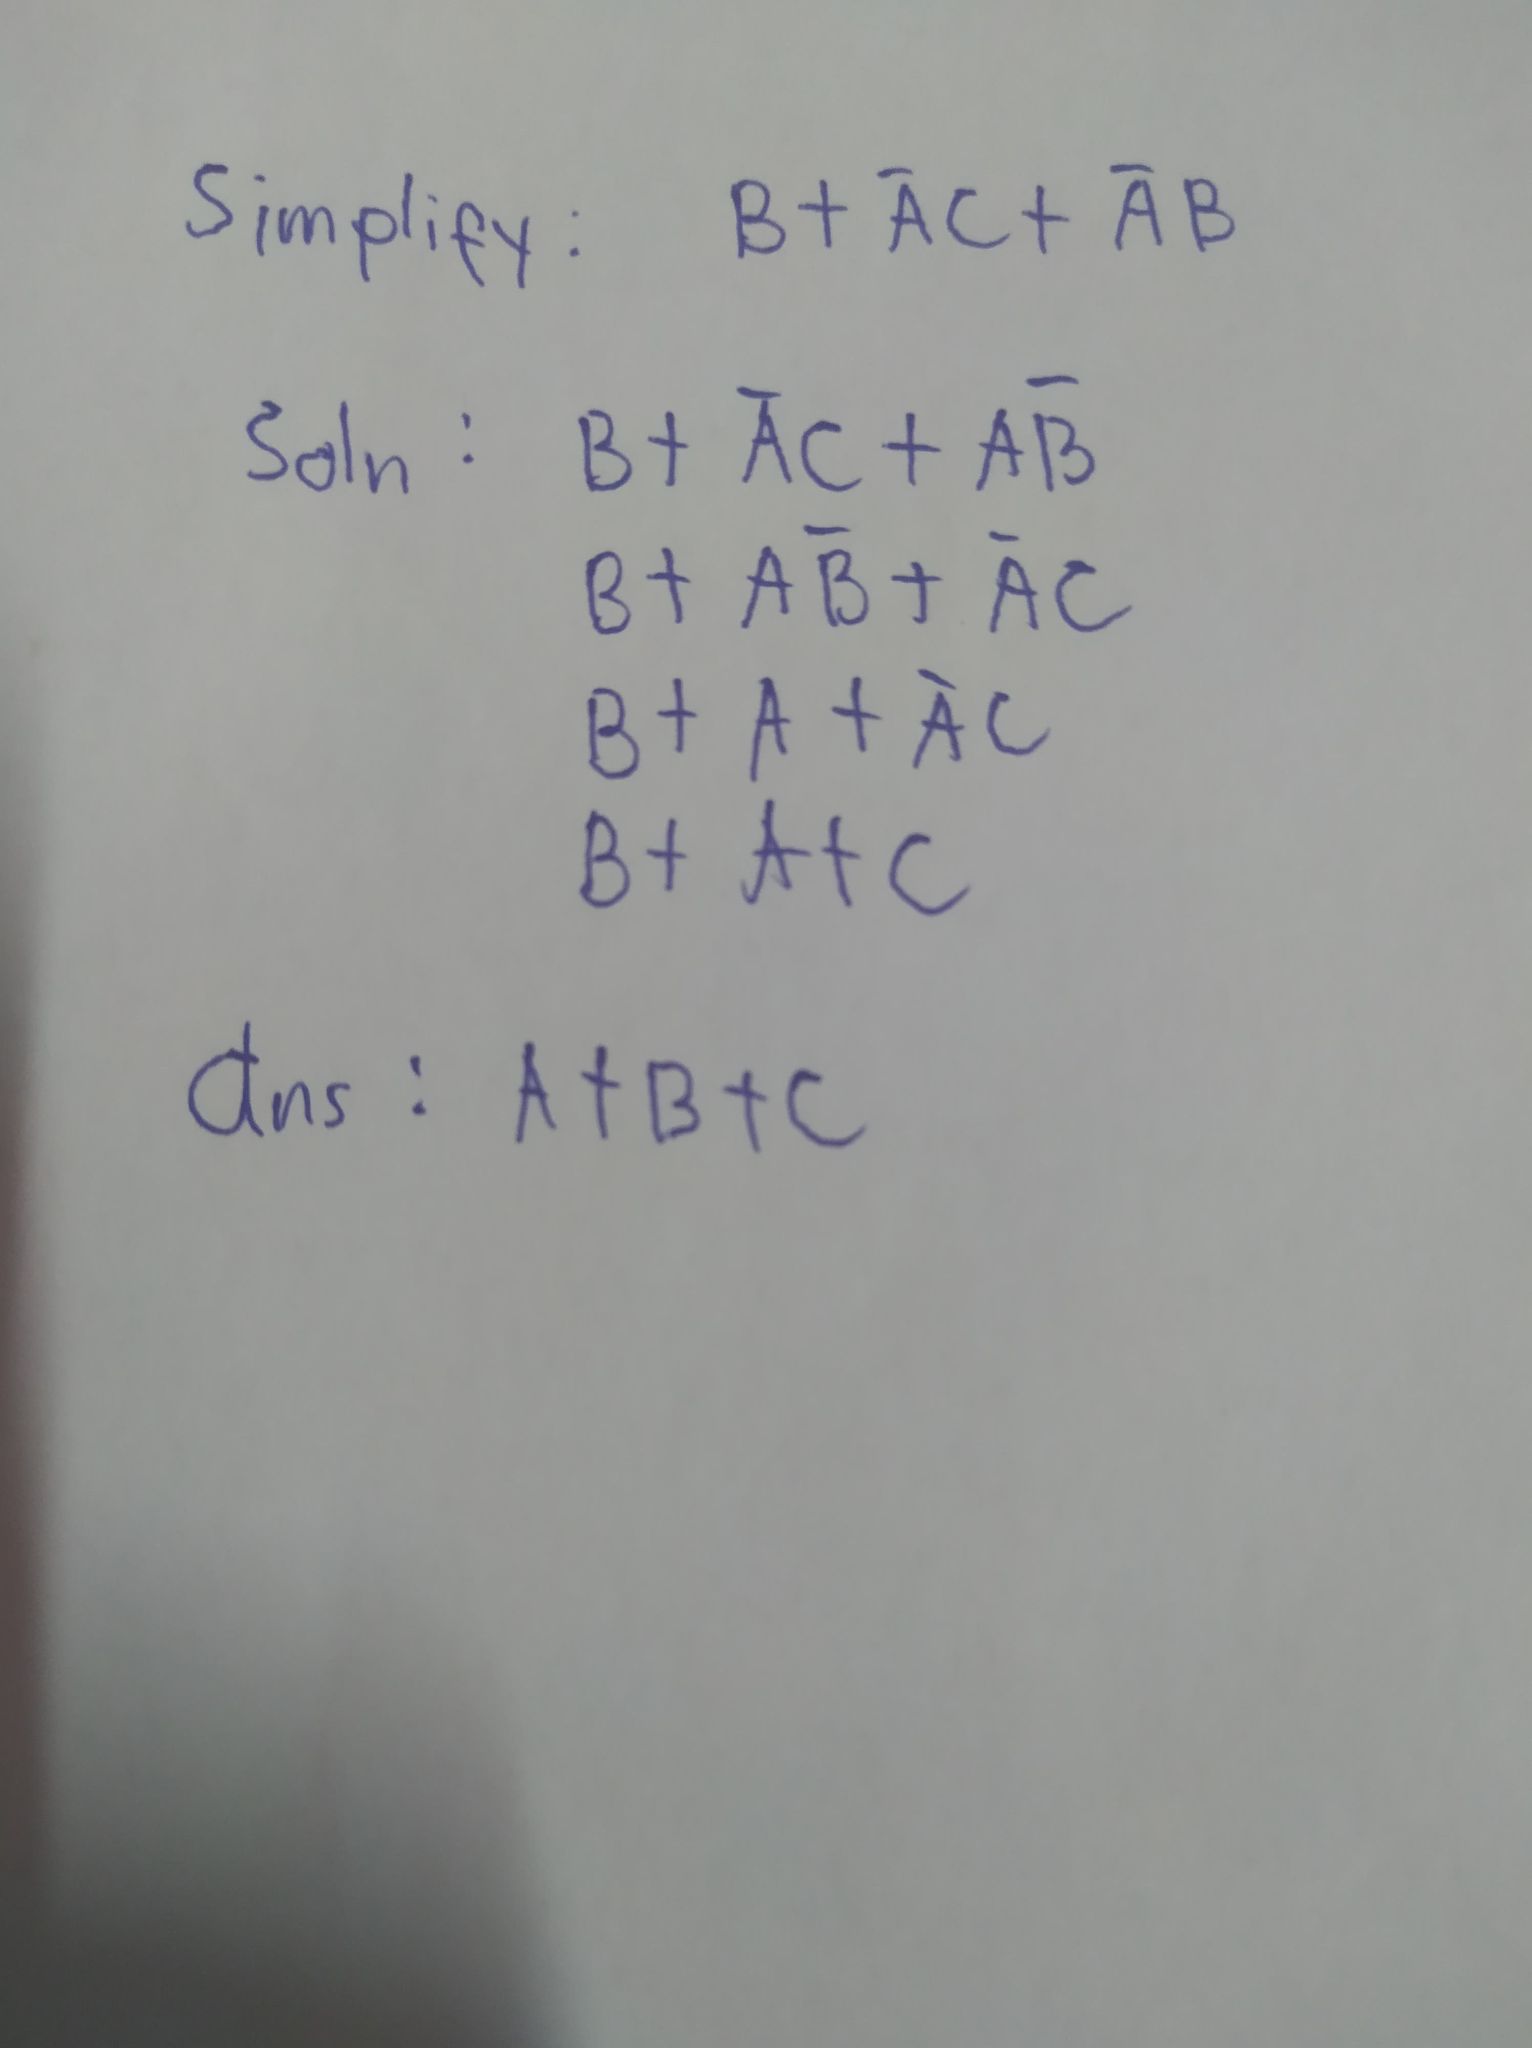 Simplify: B + A̅C + A̅B
Soln : B + A̅C + AB̅
B + AB̅ + A̅C
B + A + A̅C
B + A + C
Ans : A + B + C